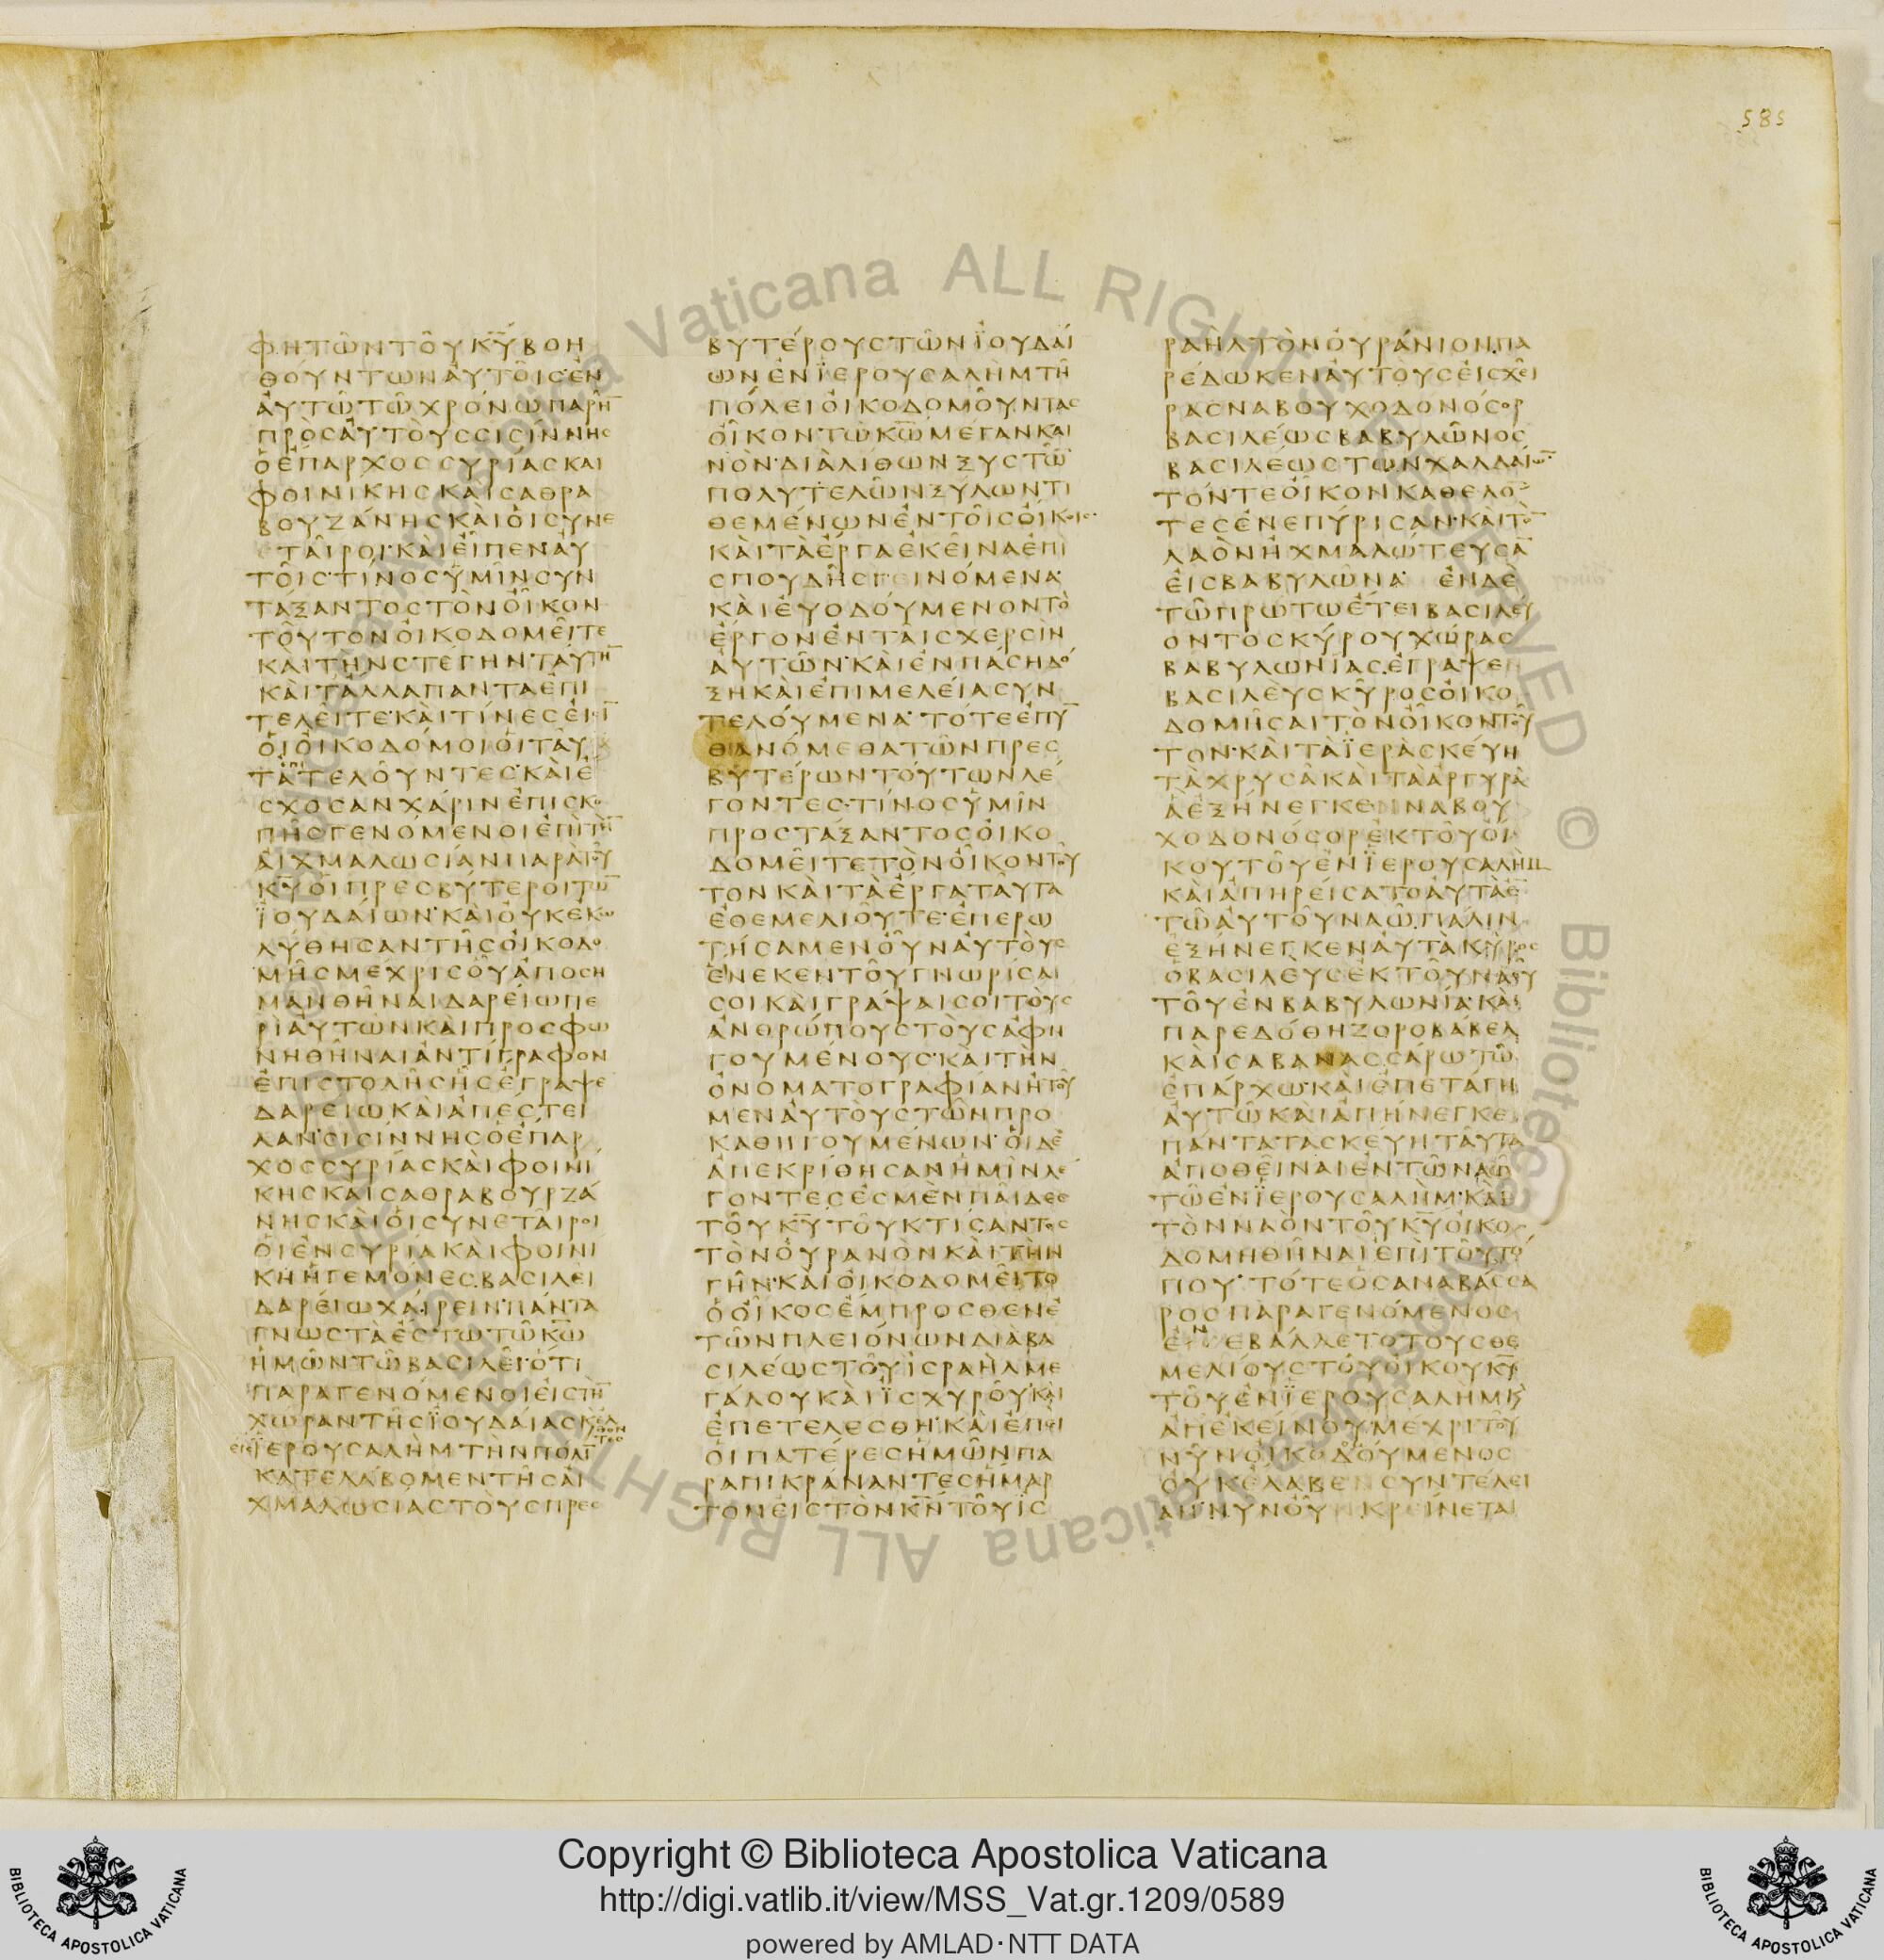 585
ΦΗΤΩ͂ΝΤΟΥ͂ΚΥ̅ΒΟΗ
ΘΟΥΝΤΩΝΑΥ̓ΤΟΙ͂Σ·ἘΝ
ΑΥ̓ΤΩ͂ΤΩ͂ΧΡΌΝΩΠΑΡΗ̅
ΠΡῸΣΑΥ̓ΤΟῪΣΣΙΣΊΝΝΗΣ
ὉἜΠΑΡΧΟΣΣΥΡΊΑΣΚΑΙ
ΦΟΙΝΊΚΗΣΚΑῚΣΑΘΡΑ
ΒΟΥΖΆΝΗΣΚΑῚΟἹΣΥΝΕ
ΤΑΙ͂ΡΟΙ·ΚΑῚΕἾΠΕΝΑΥ̓
ΤΟΙ͂Σ·ΤΊΝΟΣΫ̔ΜΙ͂ΝΣΥΝ
ΤΆΞΑΝΤΟΣΤῸΝΟἾΚΟΝ
ΤΟΥ͂ΤΟΝΟἸΚΟΔΟΜΕΙ͂ΤΕ
ΚΑΙΤῊΝΣΤΈΓΗΝΤΑΎΤΗ̅
ΚΑῚΤΆΛΛΑΠΑΝΤΑἘΠΙ
ΤΕΛΕΙ͂ΤΕ·ΚΑῚΤΊΝΕΣΕἸΣΙ̅
ΟἹΟἸΚΟΔΌΜΟΙΟἹΤΑΥ͂
ΤΑἘΠΙΤΕΛΟΥ͂ΝΤΕΣ·ΚΑῚἜ
ΣΧΟΣΑΝΧΆΡΙΝἘΠΙΣΚΟ
ΠΗ͂ΣΓΕΝΌΜΕΝΟΙἘΠῚΤῊ̅
ΑἸΧΜΑΛΩΣΊΑΝΠΑΡᾺΤΟΥ͂
ΚΥ̅ΟἹΠΡΕΣΒΎΤΕΡΟΙΤΩ̅
ΪΟΥΔΑΊΩΝ·ΚΑῚΟΥ̓ΚἘΚΩ
ΛΎΘΗΣΑΝΤΗ͂ΣΟἸΚΟΔΟ
ΜΗ͂ΣΜΈΧΡΙΣΟὟἈΠΟΣΗ
ΜΑΝΘΗ͂ΝΑΙΔΑΡΕΊΩΠΕ
ΡῚΑΥ̓ΤΩ͂ΝΚΑῚΠΡΟΣΦΩ
ΝΗΘΗ͂ΝΑΙἈΝΤΊΓΡΑΦΟΝ
ἘΠΙΣΤΟΛΗ͂ΣἯΣἜΓΡΑΨΕ
ΔΑΡΕΊΩΚΑῚἈΠΈΣΤΕΙ
ΛΑΝ·ΣΙΣΊΝΝΗΣὉἜΠΑΡ
ΧΟΣΣΥΡΊΑΣΚΑῚΦΟΙΝΊ
ΚΗΣΚΑῚΣΑΘΡΑΒΟΥΡΖΆ
ΝΗΣΚΑῚΟἹΣΥΝΕΤΑΙ͂ΡΟΙ
ΟἹἘΝΣΥΡΊΑΚΑῚΦΟΙΝΙ
ΚΗἩΓΕΜΌΝΕΣ.ΒΑΣΙΛΕΙ
ΔΑΡΕΊΩΧΑΊΡΕΙΝ·ΠΆΝΤΑ
ΓΝΩΣΤᾺἜΣΤΩΤΩ͂ΚΩ̅
ἩΜΩ͂ΝΤΩ͂ΒΑΣΙΛΕΙ͂·ὍΤΙ
ΠΑΡΑΓΕΝΌΜΕΝΟΙΕἸΣΤῊ̅
ΧΏΡΑΝΤΗ͂ΣΪΟΥΔΑΊΑΣΚΑῚἘΛ
ΘΟΝΤΕΣ
ΕΙΣΪΕΡΟΥΣΑΛῊΜΤῊΝΠΌΛΙ̅
ΚΑΤΕΛΆΒΟΜΕΝΤΗ͂ΣΑἸ
ΧΜΑΛΩΣΊΑΣΤΟῪΣΠΡΕΣ
ΒΥΤΈΡΟΥΣΤΩ͂ΝΪΟΥΔΑΊ
ΩΝἘΝΪΕΡΟΥΣΑΛῊΜΤΗ͂
ΠΌΛΕΙΟἸΚΟΔΟΜΟΥ͂ΝΤΑΣ
ΟἾΚΟΝΤΩ͂ΚΩ̅ΜΈΓΑΝΚΑΙ
ΝῸΝ·ΔΙᾺΛΊΘΩΝΞΥΣΤΩ̅
ΠΟΛΥΤΕΛΩ͂ΝΞΎΛΩΝΤΙ
ΘΕΜΈΝΩΝἘΝΤΟΙ͂ΣΟἸΚΟΙΣ·
ΚΑῚΤᾺἜΡΓΑἘΚΕΙ͂ΝΑἘΠΙ
ΣΠΟΥΔΗ͂ΣΓΕΙΝΌΜΕΝΑ·
ΚΑῚΕΥ̓ΟΔΟΎΜΕΝΟΝΤῸ
ἜΡΓΟΝἘΝΤΑΙ͂ΣΧΕΡΣῚΝ
ΑΥ̓ΤΩ͂Ν·ΚΑῚἘΝΠΆΣΗΔΌ
ΞΗΚΑῚἘΠΙΜΕΛΕΊΑΣΥΝ
ΤΕΛΟΎΜΕΝΑ·ΤΌΤΕἘΠΥ̅
ΘΑΝΌΜΕΘΑΤΩ͂ΝΠΡΕΣ
ΒΥΤΈΡΩΝΤΟΎΤΩΝΛΈ
ΓΟΝΤΕΣ·ΤΊΝΟΣὙΜΙ͂Ν
ΠΡΟΣΤΆΞΑΝΤΟΣΟἸΚΟ
ΔΟΜΕΙ͂ΤΕΤῸΝΟἾΚΟΝΤΟΥ͂
ΤΟΝΚΑῚΤᾺἜΡΓΑΤΑΥ͂ΤΑ
ἘΘΕΜΕΛΙΟΥ͂ΤΕ·ἘΠΕΡΩ
ΤΉΣΑΜΕΝΟΥ̓͂ΝΑΥ̓ΤΟῪΣ
ἝΝΕΚΕΝΤΟΥ͂ΓΝΩΡΊΣΑΙ
ΣΟΙΚΑῚΓΡΆΨΑΙΣΟΙΤΟῪΣ
ἈΝΘΡΏΠΟΥΣΤΟῪΣἈΦΗ
ΓΟΥΜΈΝΟΥΣ·ΚΑῚΤῊΝ
ὈΝΟΜΑΤΟΓΡΑΦΊΑΝἨΤΟΥ͂
ΜΕΝΑΥ̓ΤΟῪΣΤΩ͂ΝΠΡΟ
ΚΑΘΗΓΟΥΜΈΝΩΝ·ΟἹΔῈ
ἈΠΕΚΡΊΘΗΣΑΝἩΜΙ͂ΝΛΈ
ΓΟΝΤΕΣἘΣΜῈΝΠΑΙ͂ΔΕΣ
ΤΟΥ͂ΚΥ̅ΤΟΥ͂ΚΤΊΣΑΝΤΟΣ
ΤῸΝΟΥ̓ΡΑΝῸΝΚΑῚΤῊΝ
ΓΗ͂Ν·ΚΑῚΟἸΚΟΔΟΜΕΙ͂ΤΟ
ὉΟἾΚΟΣἜΜΠΡΟΣΘΕΝἘ
ΤΩ͂ΝΠΛΕΙΌΝΩΝΔΙᾺΒΑ
ΣΙΛΈΩΣΤΟΥ͂ἸΣΡΑῊΛΜΕ
ΓΆΛΟΥΚΑῚΪΣΧΥΡΟΥ͂·ΚΑῚ
ἘΠΕΤΕΛΈΣΘΗ·ΚΑῚἘΠΕΙ
ΟἹΠΑΤΈΡΕΣἩΜΩ͂ΝΠΑ
ΡΑΠΙΚΡΆΝΑΝΤΕΣἭΜΑΡ
ΤΟΝΕἸΣΤῸΝΚΝ̅ΤΟΥ͂ΙΣ
ΡΑῊΛΤῸΝΟΥ̓ΡΆΝΙΟΝ.ΠΑ
ΡΈΔΩΚΕΝΑΥ̓ΤΟῪΣΕἸΣΧΕΙ͂
ΡΑΣΝΑΒΟΥΧΟΔΟΝΌΣΟΡ
ΒΑΣΙΛΈΩΣΒΑΒΥΛΩ͂ΝΟΣ
ΒΑΣΙΛΈΩΣΤΩ͂ΝΧΑΛΔΑΊΩ̅·
ΤΌΝΤΕΟἾΚΟΝΚΑΘΕΛΌ̅
ΤΕΣἘΝΕΠΎΡΙΣΑΝ·ΚΑῚΤῸ̅
ΛΑῸΝἨΧΜΑΛΏΤΕΥΣΑ̅
ΕἸΣΒΑΒΥΛΩ͂ΝΑ· ἘΝΔῈ
ΤΩ͂ΠΡΏΤΩἜΤΕΙΒΑΣΙΛΕΎ
ΟΝΤΟΣΚΎΡΟΥΧΏΡΑΣ
ΒΑΒΥΛΩΝΊΑΣ.ἜΓΡΑΨΕΝ
ΒΑΣΙΛΕῪΣΚΥ͂ΡΟΣΟἸΚΟ
ΔΟΜΗ͂ΣΑΙΤῸΝΟἾΚΟΝΤΟΥ͂
ΤΟΝ·ΚΑῚΤᾺΪΕΡᾺΣΚΕΎΗ
ΤᾺΧΡΥΣΑ͂ΚΑῚΤᾺἈΡΓΥΡΑ͂
ἋἘΞΉΝΕΓΚΕΝΝΑΒΟΥ
ΧΟΔΟΝΌΣΟΡἘΚΤΟΥ͂ΟἼ
ΚΟΥΤΟΥ͂ἘΝΪΕΡΟΥΣΑΛῊΜ
ΚΑῚἈΠΗΡΕΊΣΑΤΟΑΥ̓ΤᾺἘ̅
ΤΩ͂ΑΥ̓ΤΟΥ͂ΝΑΩ͂ΠΆΛΙΝ
ἘΞΉΝΕΓΚΕΝΑΥ̓ΤᾺΚΥ͂ΡΟΣ
ὉΒΑΣΙΛΕῪΣἘΚΤΟΥ͂ΝΑΟΥ͂
ΤΟΥ͂ἘΝΒΑΒΥΛΩΝΊΑ·ΚΑῚ
ΠΑΡΕΔΌΘΗΖΟΡΟΒΑΒΕΛ
ΚΑῚΣΑΒΑΝΑΣΣΆΡΩΤΩ͂
ἘΠΆΡΧΩ·ΚΑῚἘΠΕΤΆΓΗ
ΑΥ̓ΤΩ͂ΚΑῚἈΠΉΝΕΓΚΕΝ
ΠΑΝΤΑΤΑΣΚΕΎΗΤΑΥ͂ΤΑ
ἈΠΟΘΕΙ͂ΝΑΙἘΝΤΩ͂ΝΑΩ͂
ΤΩ͂ἘΝΪΕΡΟΥΣΑΛῊΜ·ΚΑῚ
ΤῸΝΝΑῸΝΤΟΥ͂ΚΥ̅ΟἸΚΟ
ΔΟΜΗΘΗ͂ΝΑΙἘΠῚΤΟΥ͂ΤΌ
ΠΟΥ· ΤΌΤΕὉΣΑΝΑΒΑΣΣΑ
ΡΟΣΠΑΡΑΓΕΝΌΜΕΝΟΣ
ΕΒΆΛΛΕΤΟΤΟΥΣΘΕ
ΜΕΛΊΟΥΣΤΟΥ͂ΟἼΚΟΥΚΥ̅
ΤΟΥ͂ἘΝΪΕΡΟΥΣΑΛῊΜΚᾺ
ἈΠἘΚΕΊΝΟΥ·ΜΕΧΡΙΤΟΥ͂
ΝΥ͂ΝΟἸΚΟΔΟΜΟΎΜΕΝΟΣ
ΟΥ̓ΚἜΛΑΒΕΝΣΥΝΤΈΛΕΙ
ΑΝ·ΝΥ͂ΝΟΥ̓͂ΝΚΡΕΊΝΕΤΑΙ
Copyright © Biblioteca Apostolica Vaticana
http://digi.vatlib.it/view/MSS_Vat.gr.1209/0589
powered by AMLAD·NTT DATA
BIBLIOTECA APOSTOLICA VATICANA
BIBLIOTECA APOSTOLICA VATICANA